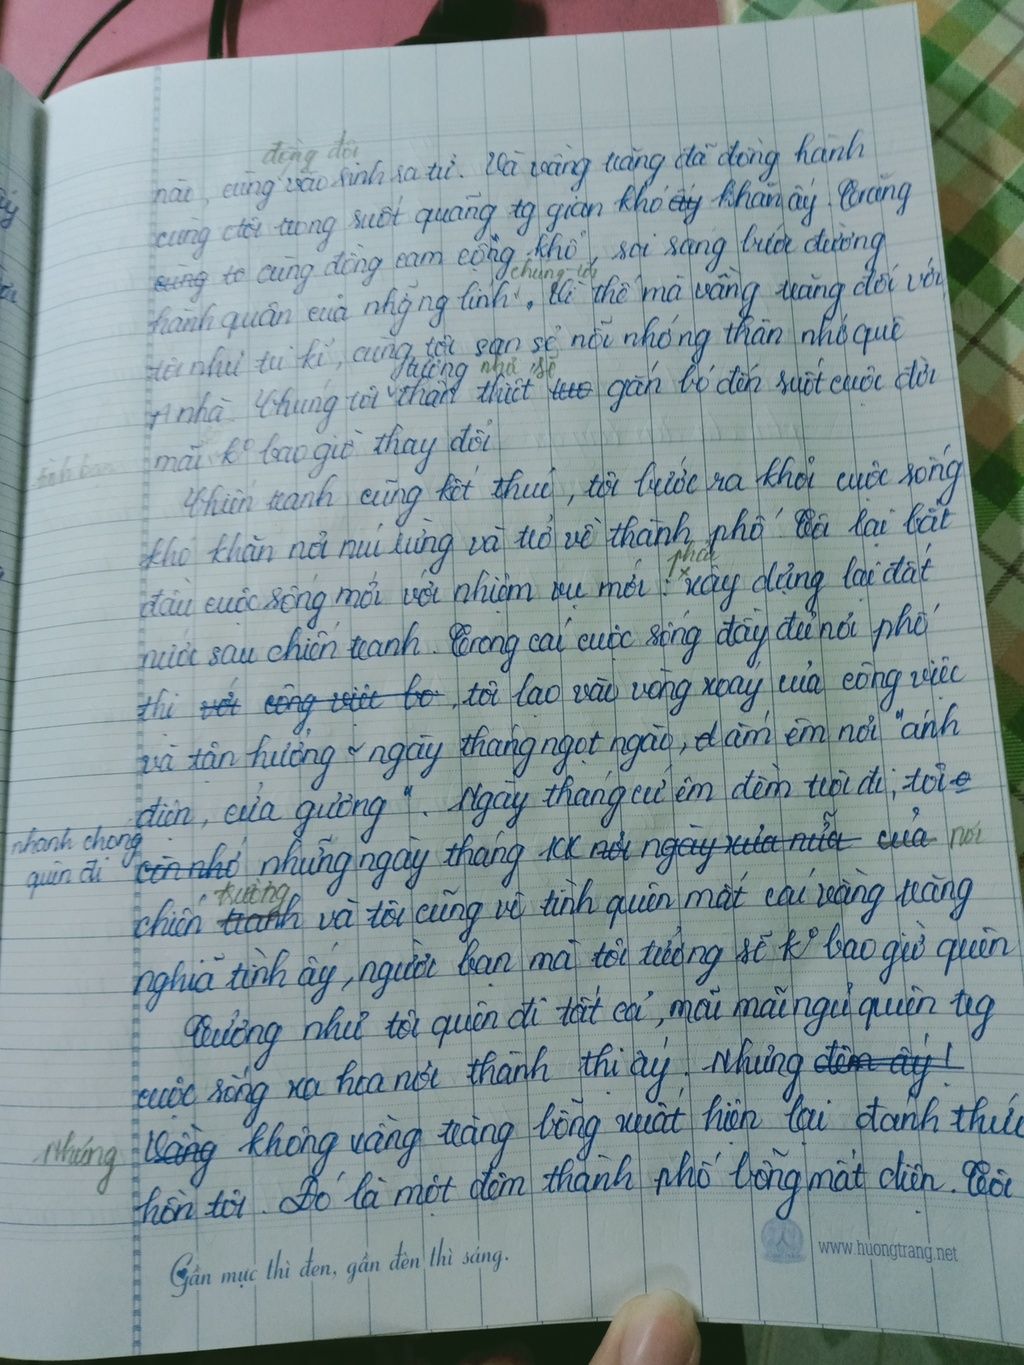 đồng đội
nào, cùng vào sinh ra tử. Và vầng trăng đã đồng hành
cùng ctôi trong suốt quãng tg gian khó ấy khăn ấy. Trăng
cung to cùng đồng cam cộng khổ, soi sáng bước đường
chúng tôi
hành quân của những lính. Vì thế mà vầng trăng đối với
tôi như tri kỉ, cùng tôi san sẻ nỗi nhớ thân nhớ quê
tưởng như sẽ
nhà. Chúng tôi thân thiết gắn bó đến suốt cuộc đời
mãi k° bao giờ thay đổi
Chiến tranh cũng kết thúc, tôi bước ra khỏi cuộc sống
khó khăn nơi núi rừng và trở về thành phố. Tôi lại bắt
phải
đầu cuộc sống mới với nhiệm vụ mới: xây dựng lại đất
nước sau chiến tranh. Trong cái cuộc sống đầy đủ nơi phố
thị với công việc bo, tôi lao vào vòng xoáy của công việc
và tận hưởng ~ ngày tháng ngọt ngào, đầm ấm nơi "ánh
điện, cửa gương". Ngày tháng cứ êm đềm trôi đi, tôi
nhanh chóng
quên đi
còn nhớ những ngày tháng KK nơi ngày xưa nữa của nơi
trường
chiến tranh và tôi cũng vô tình quên mất cái vầng trăng
nghĩa tình ấy, người bạn mà tôi tưởng sẽ k° bao giờ quên
Tưởng như tôi quên đi tất cả, mãi mãi ngủ quên trg
cuộc sống xa hoa nơi thành thị ấy. Nhưng đêm ấy!
Nhưng Vầng không vầng trăng bỗng xuất hiện lại đánh thức
hồn tôi. Đó là một đêm thành phố bỗng mất điện. Tôi
Gần mực thì đen, gần đèn thì sáng.
www.huongtrang.net